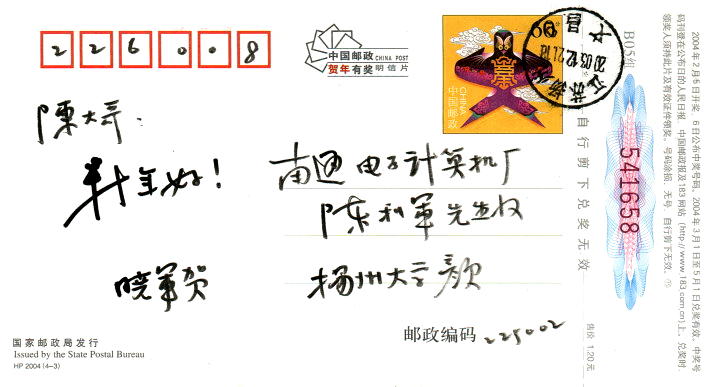 226008
中国邮政 CHINA POST
贺年有奖 明信片
80分
CHINA
中国邮政
江苏扬州
2003.12.21.18
陳大哥.
年好!
晓军贺
南通电子计算机厂
陈利军先生收
扬州大学颜
邮政编码 225002
国家邮政局发行
Issued by the State Postal Bureau
HP 2004 (4-3)
售价 1.20元
自行剪下兑奖无效
B05组
541658
2004年2月5日开奖, 6日公布中奖号码。2004年3月1日至5月1日兑奖有效。中奖号
码刊登在公布日的人民日报、中国邮政报及183网站 (http://www.183.com.cn)上。兑奖时,
领奖人须持此片及有效证件领奖。号码涂损、无号、自行剪下无效。